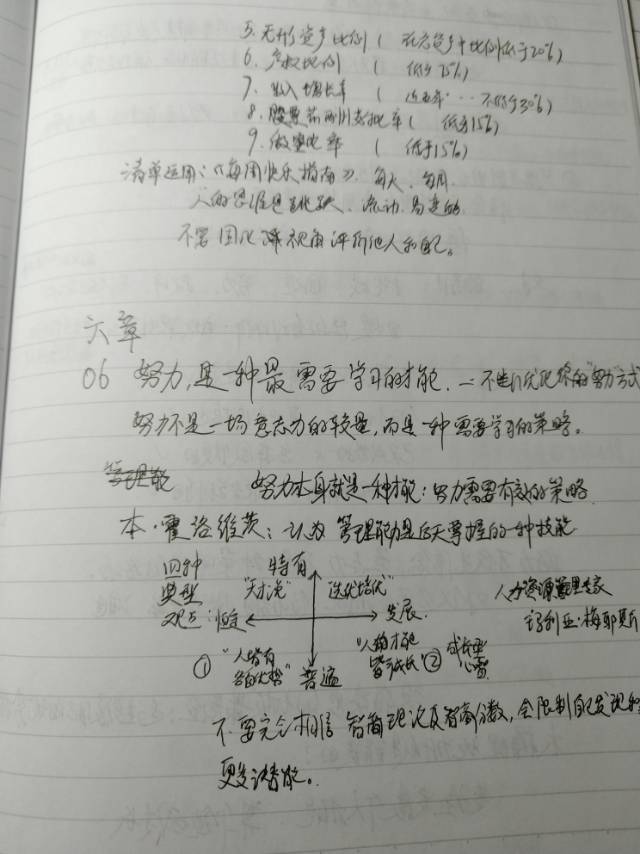 5. 无形资产比例 ( 在总资产中比例低于20%)
6. 产权比例 ( 低于75%)
7. 收入增长率 ( 近五年…不低于30%)
8. 股票前 率 ( 低于15%)
9. 率 ( 低于15%)
清单运用:《每周快乐指南》、每人、每周.
人的思维是跳跃、流动、易变的
不要固化 视角评价他人和自己。
六章
06 努力,是一种最需要学习的才能. 一 不断优化你的"努力"方式
努力不是一场意志力的较量,而是一种需要学习的策略。
努力本身就是一种才能:努力需要有效的策略
本·霍洛维茨:认为 管理能力是后天掌握的一种技能
四种 特有
类型 "天才说" "选优培优"
观点:恒定 发展.
人力资源管理专家
玛利亚·梅耶斯
① "人皆有各自优势" 普遍 "人的才能皆可成长" ② 成长型心智
不要完全相信 智商理论及智商分数,会限制自己发现和
更多潜能。